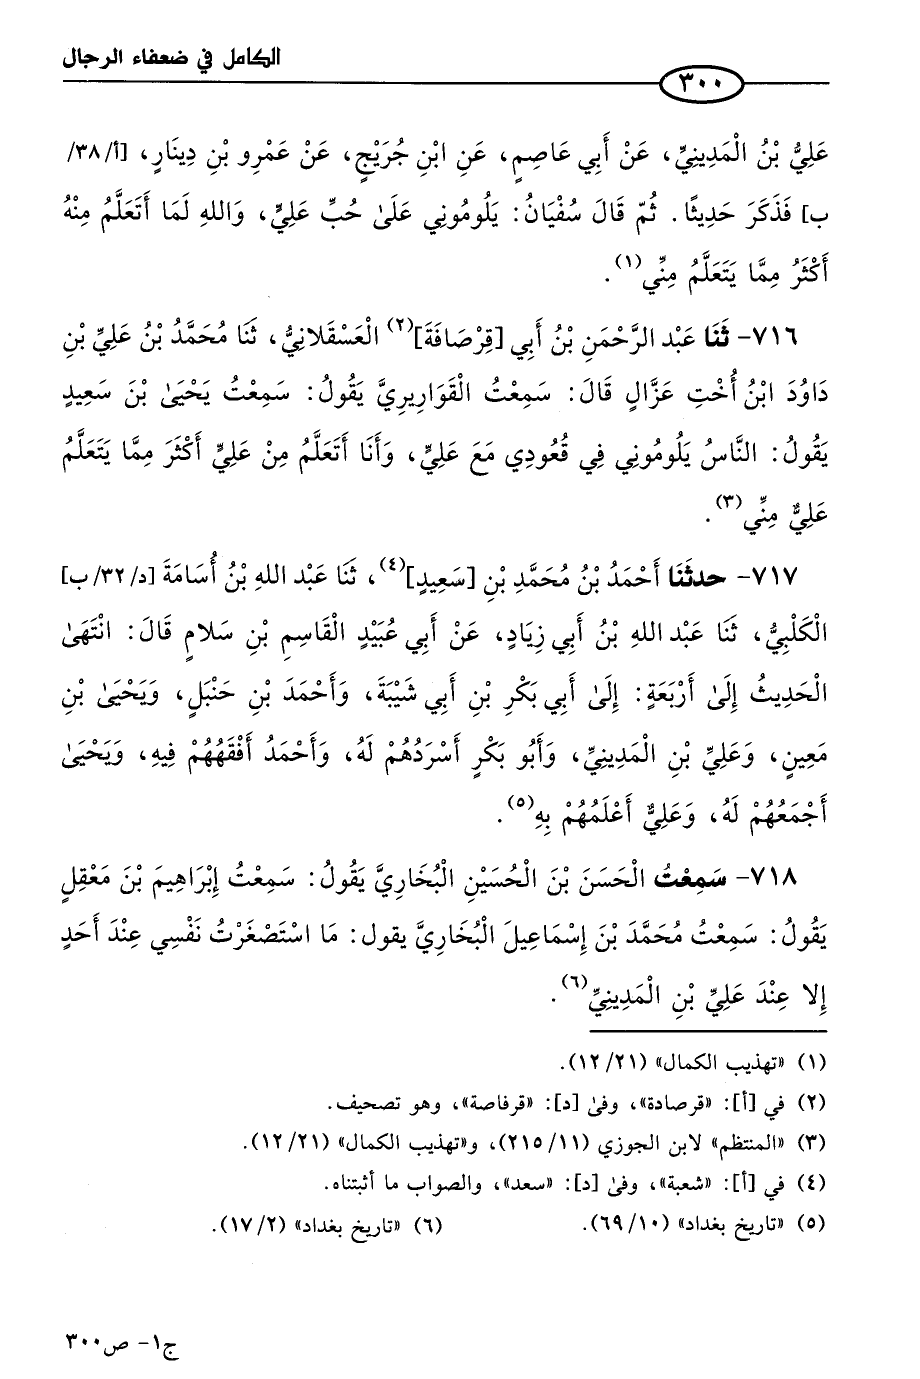 الكامل في ضعفاء الرجال
٣٠٠
عَلِيُّ بْنُ الْمَدِينِيِّ، عَنْ أَبِي عَاصِمٍ، عَنِ ابْنِ جُرَيْجٍ، عَنْ عَمْرِو بْنِ دِينَارٍ، [أ/٣٨/
ب] فَذَكَرَ حَدِيثًا. ثُمّ قَالَ سُفْيَانُ: يَلُومُونِي عَلَىٰ حُبِّ عَلِيٍّ، وَاللهِ لَمَا أَتَعَلَّمُ مِنْهُ
أَكْثَرُ مِمَّا يَتَعَلَّمُ مِنِّي(١).
٧١٦- ثَنَا عَبْد الرَّحْمَنِ بْنُ أَبِي [قِرْصَافَةَ](٢) الْعَسْقَلانِيُّ، ثَنَا مُحَمَّدُ بْنُ عَلِيِّ بْنِ
دَاوُدَ ابْنُ أُخْتِ غَزَّالٍ قَالَ: سَمِعْتُ الْقَوَارِيرِيَّ يَقُولُ: سَمِعْتُ يَحْيَىٰ بْنَ سَعِيدٍ
يَقُولُ: النَّاسُ يَلُومُونِي فِي قُعُودِي مَعَ عَلِيٍّ، وَأَنَا أَتَعَلَّمُ مِنْ عَلِيٍّ أَكْثَرَ مِمَّا يَتَعَلَّمُ
عَلِيٌّ مِنِّي(٣).
٧١٧- حدثَنَا أَحْمَدُ بْنُ مُحَمَّدِ بْنِ [سَعِيدٍ](٤)، ثَنَا عَبْد اللهِ بْنُ أُسَامَةَ [د/٣٢/ب]
الْكَلْبِيُّ، ثَنَا عَبْد اللهِ بْنُ أَبِي زِيَادٍ، عَنْ أَبِي عُبَيْدٍ الْقَاسِمِ بْنِ سَلامٍ قَالَ: انْتَهَىٰ
الْحَدِيثُ إِلَىٰ أَرْبَعَةٍ: إِلَىٰ أَبِي بَكْرِ بْنِ أَبِي شَيْبَةَ، وَأَحْمَدَ بْنِ حَنْبَلٍ، وَيَحْيَىٰ بْنِ
مَعِينٍ، وَعَلِيِّ بْنِ الْمَدِينِيِّ، وَأَبُو بَكْرٍ أَسْرَدُهُمْ لَهُ، وَأَحْمَدُ أَفْقَهُهُمْ فِيهِ، وَيَحْيَىٰ
أَجْمَعُهُمْ لَهُ، وَعَلِيٌّ أَعْلَمُهُمْ بِهِ(٥).
٧١٨- سَمِعْتُ الْحَسَنَ بْنَ الْحُسَيْنِ الْبُخَارِيَّ يَقُولُ: سَمِعْتُ إِبْرَاهِيمَ بْنَ مَعْقِلٍ
يَقُولُ: سَمِعْتُ مُحَمَّدَ بْنَ إِسْمَاعِيلَ الْبُخَارِيَّ يقول: مَا اسْتَصْغَرْتُ نَفْسِي عِنْدَ أَحَدٍ
إِلا عِنْدَ عَلِيِّ بْنِ الْمَدِينِيِّ(٦).
(١) «تهذيب الكمال» (١٢/٢١).
(٢) في [أ]: «قرصادة»، وفىٰ [د]: «قرفاصة»، وهو تصحيف.
(٣) «المنتظم» لابن الجوزي (٢١٥/١١)، و«تهذيب الكمال» (١٢/٢١).
(٤) في [أ]: «شعبة»، وفىٰ [د]: «سعد»، والصواب ما أثبتناه.
(٥) «تاريخ بغداد» (٦٩/١٠). (٦) «تاريخ بغداد» (١٧/٢).
ج١- ص٣٠٠